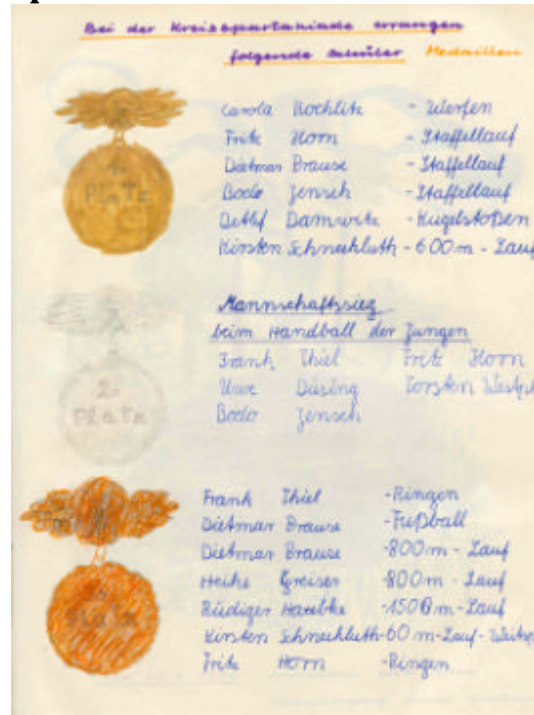 Bei der Kreisspartakiade errangen
folgende Schüler Medaillen
1. Platz
Carola Kochlitz - Werfen
Fritz Horn - Staffellauf
Dietmar Brause - Staffellauf
Bodo Jensch - Staffellauf
Detlef Damwitz - Kugelstoßen
Kirsten Schneekluth - 600 m - Lauf
2. Platz
Mannschaftssieg
beim Handball der Jungen
Frank Thiel Fritz Horn
Uwe Düsing Torsten
Bodo Jensch
Platz
Frank Thiel - Ringen
Dietmar Brause - Fußball
Dietmar Brause - 800 m - Lauf
Heike Greiser - 800 m - Lauf
Rüdiger - 1500 m - Lauf
Kirsten Schneekluth - 60 m - Lauf -
Fritz Horn - Ringen